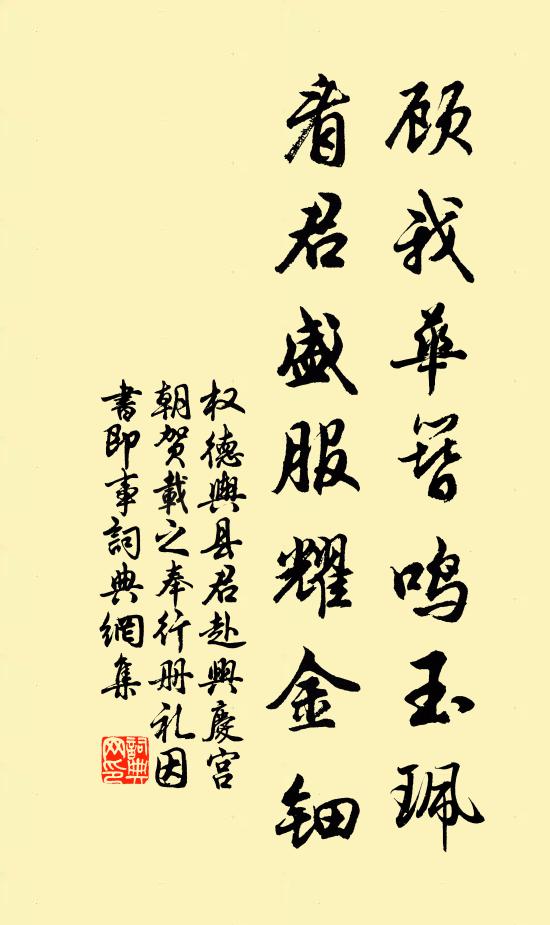 顾我华簪鸣玉珮
看君盛服耀金钿
权德舆县君赴興慶宫
朝贺載之奉行册礼因
書即事詞典網集
詞典网印